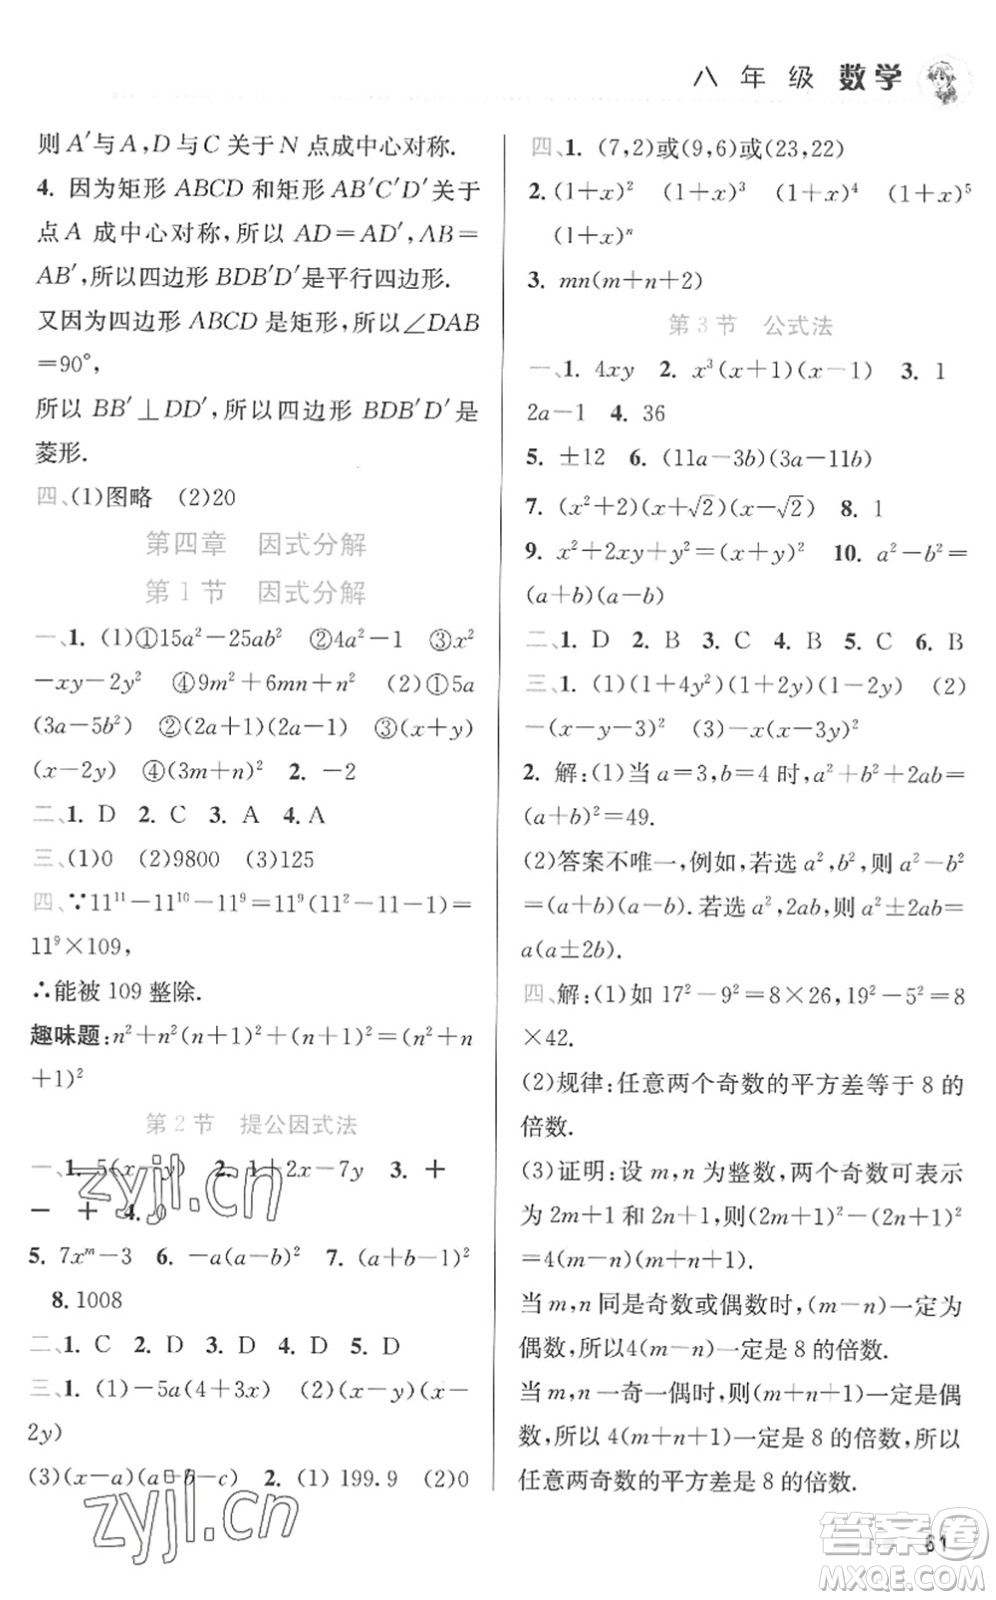 八年级 数学
则 A′与 A,D 与 C 关于 N 点成中心对称.
4. 因为矩形 ABCD 和矩形 AB′C′D′关于
点 A 成中心对称,所以 AD＝AD′,AB＝
AB′,所以四边形 BDB′D′是平行四边形.
又因为四边形 ABCD 是矩形,所以∠DAB
＝90°,
所以 BB′⊥DD′,所以四边形 BDB′D′是
菱形.
四、(1)图略 (2)20
第四章 因式分解
第 1 节 因式分解
一、1. (1)①15a²－25ab² ②4a²－1 ③x²
－xy－2y² ④9m²＋6mn＋n² (2)①5a
(3a－5b²) ②(2a＋1)(2a－1) ③(x＋y)
(x－2y) ④(3m＋n)² 2. －2
二、1. D 2. C 3. A 4. A
三、(1)0 (2)9800 (3)125
四、∵11¹¹－11¹⁰－11⁹＝11⁹(11²－11－1)＝
11⁹×109,
∴能被 109 整除.
趣味题:n²＋n²(n＋1)²＋(n＋1)²＝(n²＋n
＋1)²
第 2 节 提公因式法
一、1. 5(x－y) 2. 1＋2x－7y 3. ＋
－ ＋ 4. 0
5. 7xᵐ－3 6. －a(a－b)² 7. (a＋b－1)²
8. 1008
二、1. C 2. D 3. D 4. D 5. D
三、1. (1)－5a(4＋3x) (2)(x－y)(x－
2y)
(3)(x－a)(a－b－c) 2. (1) 199.9 (2)0
四、1. (7,2)或(9,6)或(23,22)
2. (1＋x)² (1＋x)³ (1＋x)⁴ (1＋x)⁵
(1＋x)ⁿ
3. mn(m＋n＋2)
第 3 节 公式法
一、1. 4xy 2. x³(x＋1)(x－1) 3. 1
2a－1 4. 36
5. ±12 6. (11a－3b)(3a－11b)
7. (x²＋2)(x＋√2)(x－√2) 8. 1
9. x²＋2xy＋y²＝(x＋y)² 10. a²－b²＝
(a＋b)(a－b)
二、1. D 2. B 3. C 4. B 5. C 6. B
三、1. (1)(1＋4y²)(1＋2y)(1－2y) (2)
－(x－y－3)² (3)－x(x－3y)²
2. 解:(1)当 a＝3,b＝4 时,a²＋b²＋2ab＝
(a＋b)²＝49.
(2)答案不唯一,例如,若选 a²,b²,则 a²－b²
＝(a＋b)(a－b).若选 a²,2ab,则 a²±2ab＝
a(a±2b).
四、解:(1)如 17²－9²＝8×26,19²－5²＝8
×42.
(2)规律:任意两个奇数的平方差等于 8 的
倍数.
(3)证明:设 m,n 为整数,两个奇数可表示
为 2m＋1 和 2n＋1,则(2m＋1)²－(2n＋1)²
＝4(m－n)(m＋n＋1).
当 m,n 同是奇数或偶数时,(m－n)一定为
偶数,所以4(m－n)一定是 8 的倍数.
当 m,n 一奇一偶时,则(m＋n＋1)一定是偶
数,所以 4(m＋n＋1)一定是 8 的倍数,所以
任意两奇数的平方差是 8 的倍数.
zyjl.cn
zyjl.cn
答案圈
MXQE.COM
61